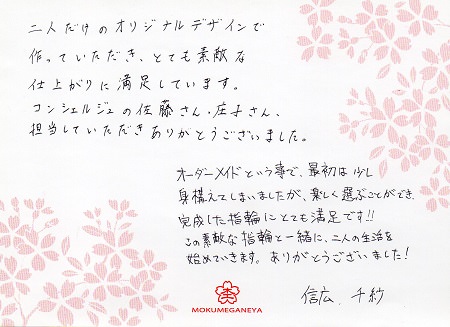 二人だけのオリジナルデザインで
作っていただき、とても素敵な
仕上がりに満足しています。
コンシェルジュの佐藤さん・庄子さん、
担当していただきありがとうございました。
オーダーメイドという事で、最初は少し
身構えてしまいましたが、楽しく選ぶことができ、
完成した指輪にとても満足です!!
この素敵な指輪と一緒に、二人の生活を
始めていきます。ありがとうございました!
信広、千紗
MOKUMEGANEYA